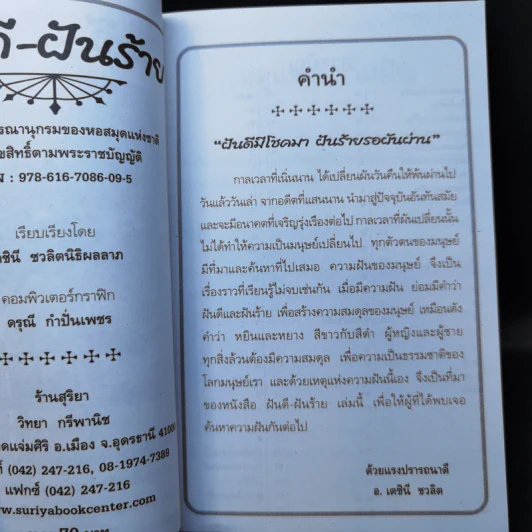 ดี-ฝันร้าย
รณานุกรมของหอสมุดแห่งชาติ
ขสิทธิ์ตามพระราชบัญญัติ
: 978-616-7086-09-5
เรียบเรียงโดย
ชวลิตนิธิผลลาภ
คอมพิวเตอร์กราฟิก
ดรุณี กำปั่นเพชร
ร้านสุริยา
วิทยา กรีพานิช
ดแจ่มศิริ อ.เมือง จ.อุดรธานี 41000
(042) 247-216, 08-1974-7389
แฟกซ์ (042) 247-216
www.suriyabookcenter.com
70 บาท
คำนำ
"ฝันดีมีโชคมา ฝันร้ายรอผันผ่าน"
กาลเวลาที่เนิ่นนาน ได้เปลี่ยนผันวันคืนให้พ้นผ่านไป
วันแล้ววันเล่า จากอดีตที่แสนนาน นำมาสู่ปัจจุบันอันทันสมัย
และจะมีอนาคตที่เจริญรุ่งเรืองต่อไป กาลเวลาที่ผันเปลี่ยนนั้น
ไม่ได้ทำให้ความเป็นมนุษย์เปลี่ยนไป ทุกตัวตนของมนุษย์
มีที่มาและค้นหาที่ไปเสมอ ความฝันของมนุษย์ จึงเป็น
เรื่องราวที่เรียนรู้ไม่จบเช่นกัน เมื่อมีความฝัน ย่อมมีคำว่า
ฝันดีและฝันร้าย เพื่อสร้างความสมดุลของมนุษย์ เหมือนดัง
คำว่า หยินและหยาง สีขาวกับสีดำ ผู้หญิงและผู้ชาย
ทุกสิ่งล้วนต้องมีความสมดุล เพื่อความเป็นธรรมชาติของ
โลกมนุษย์เรา และด้วยเหตุแห่งความฝันนี้เอง จึงเป็นที่มา
ของหนังสือ ฝันดี-ฝันร้าย เล่มนี้ เพื่อให้ผู้ที่ได้พบเจอ
ค้นหาความฝันกันต่อไป
ด้วยแรงปรารถนาดี
อ. เตชินี ชวลิต